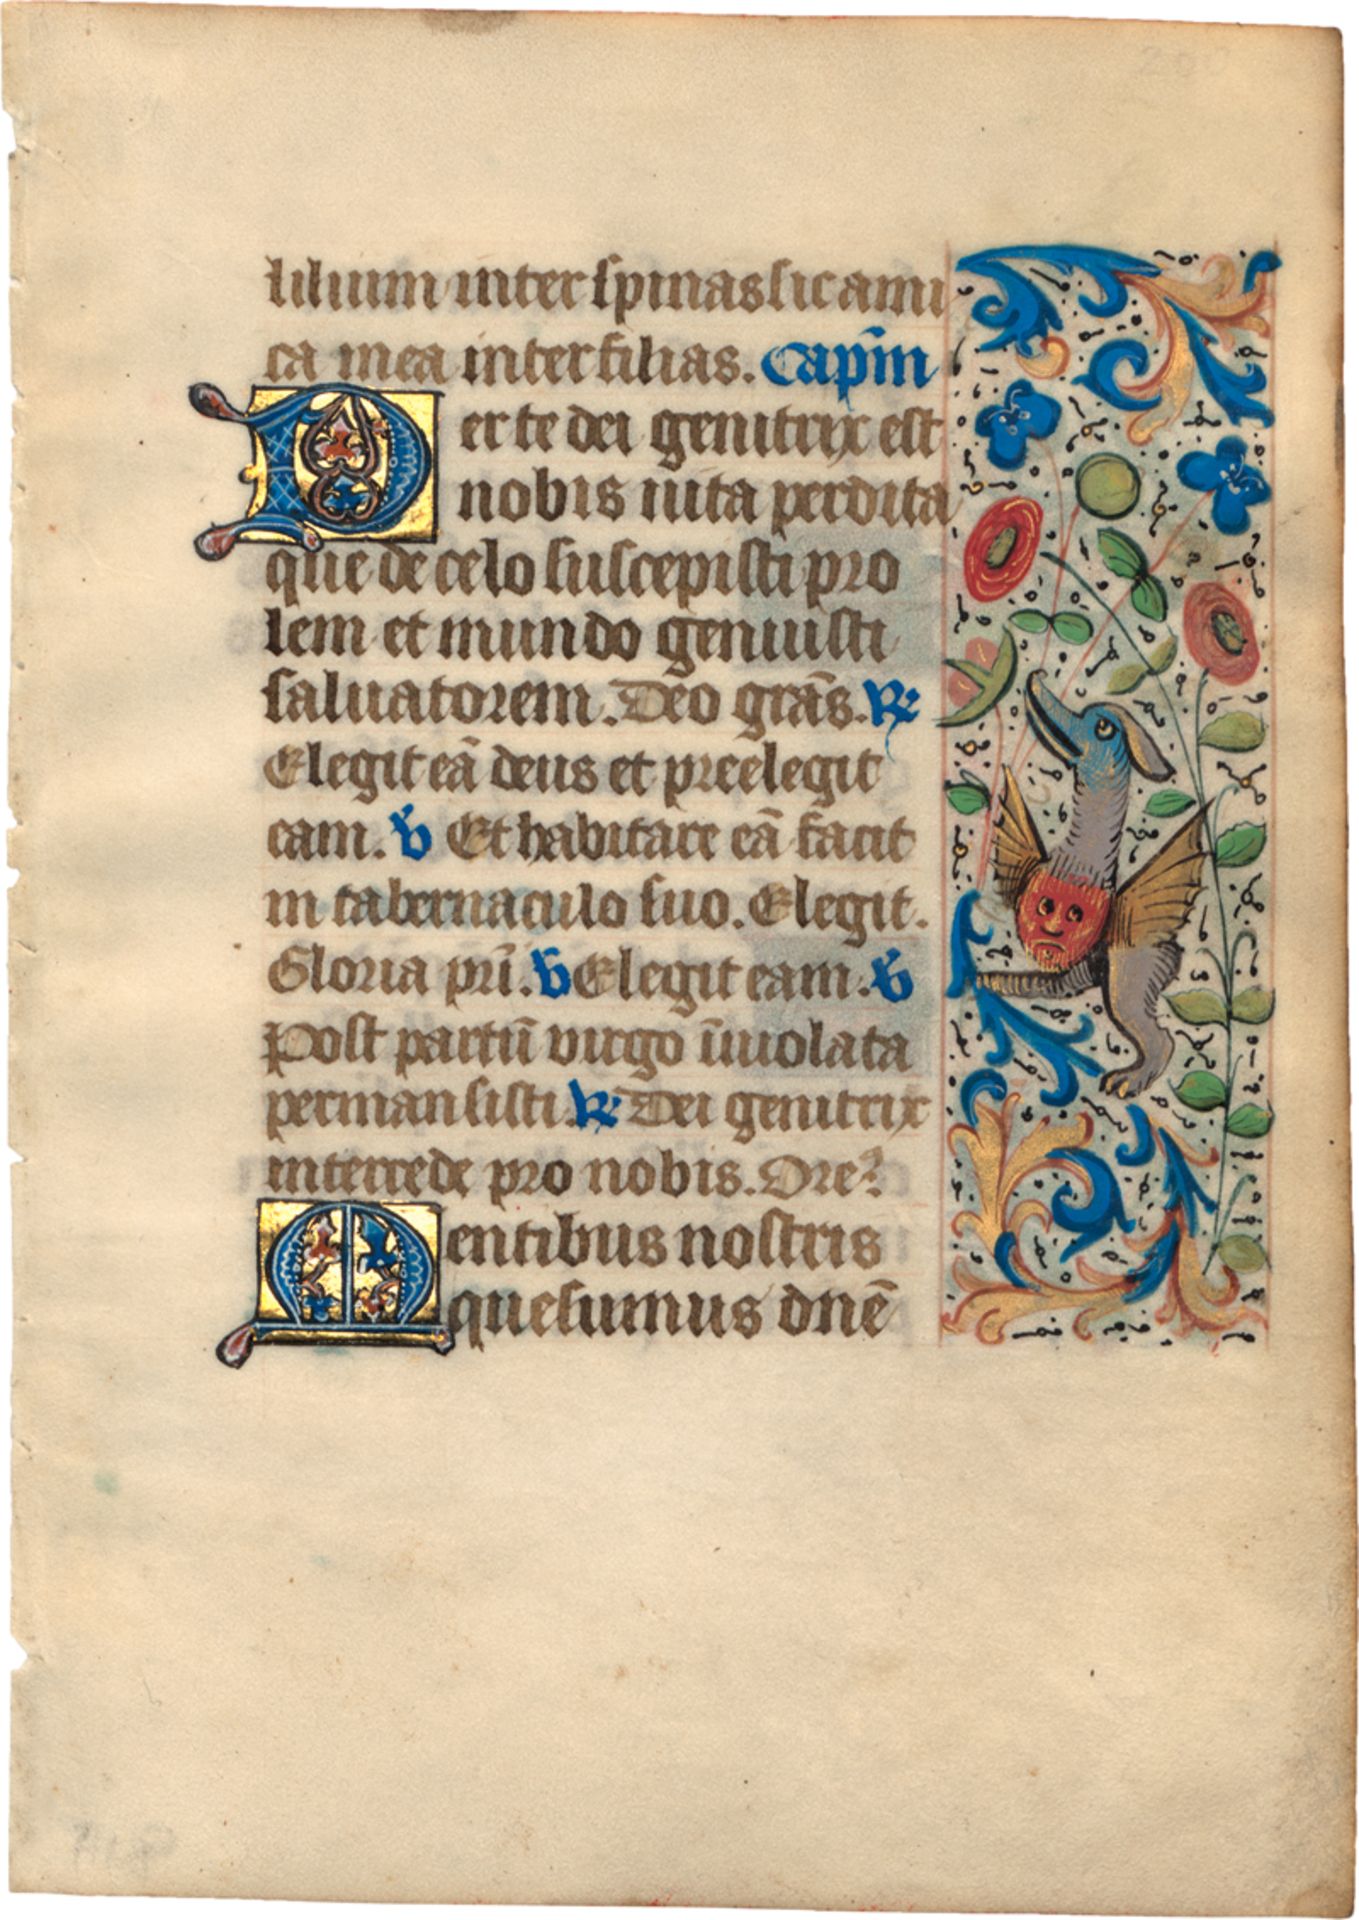 lilium inter spinas sic ami
ca mea inter filias. Capm̄
Per te dei genitrix est
nobis uita perdita
que de celo suscepisti pro
lem et mundo genuisti
saluatorem. Deo grãs. R̃
Elegit eã deus et preelegit
eam. ṽ Et habitare eã facit
in tabernaculo suo. Elegit.
Gloria pr̃i. ṽ Elegit eam. ṽ
Post partũ virgo ĩuiolata
permansisti. R̃ Dei genitrix
intercede pro nobis. Ore².
Mentibus nostris
quesumus dnẽ